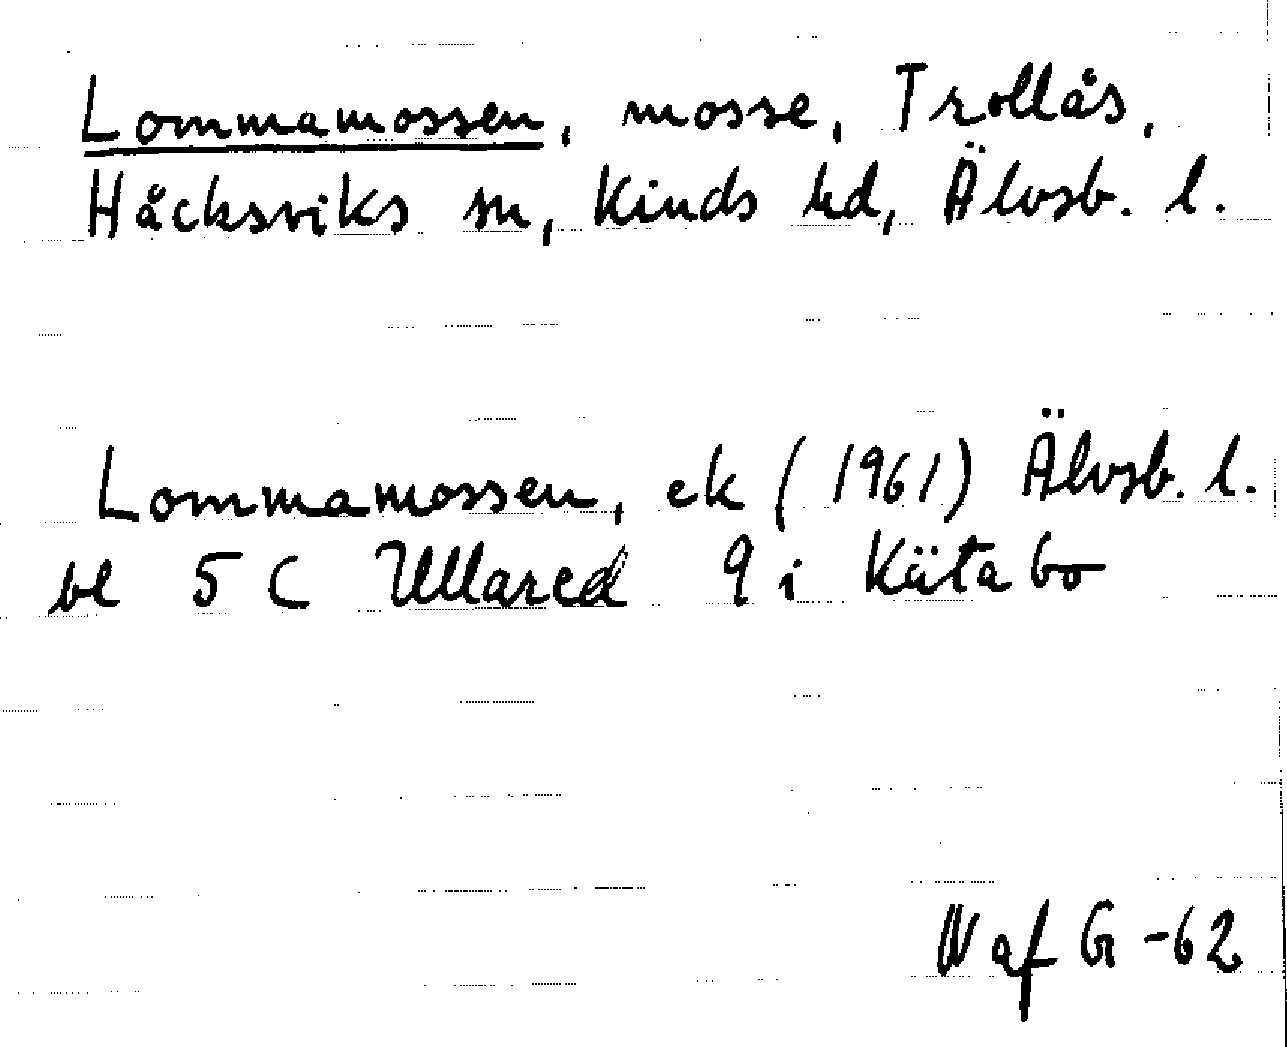 Lommamossen, mosse, Trollås,
Håcksviks sn, Kinds hd, Älvsb. l.
Lommamossen, ek (1961) Älvsb. l.
bl 5 C Ullared 9 i Kätabo
W af G -62